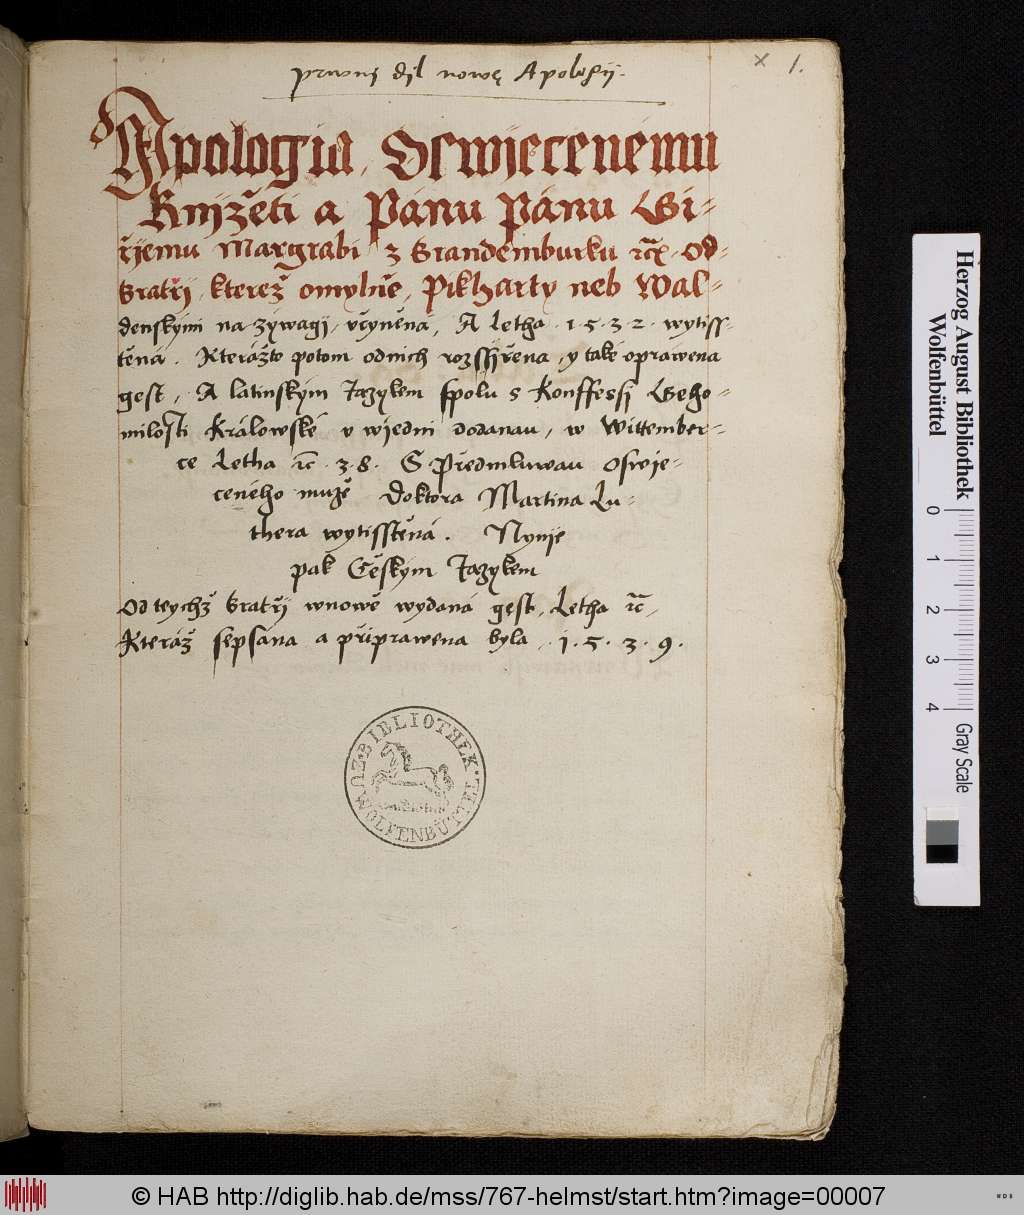 prwnij dijl nowe Apologij.
x 1.
Apologia, Oswijecenému
Knijžeti a Pánu Pánu Gi-
řijemu Margrabi z Brandemburku ꝛc̃. Od
Bratřij, kterež omylně, Pikharty neb Wal-
denskými nazýwagij, včyněná, A Letha .1.5.3.2. wytiss-
těná. Kterážto potom odnich rozssijřena, y také oprawena
gest, A latinským Jazykem spolu s Konffessij Geho-
milosti Králowské v wijedni dodanau, w Wittember-
ce Letha ꝛc̃ .3.8. S Předmluwau Oswije-
ceného muže Doktora Martina Lu-
thera wytisstěná. Nynije
pak Českým Jazykem
Od teychž Bratřij wnowě wydaná gest, Letha ꝛc̃,
Kteráž sepsána a připrawena byla, .1.5.3.9.
BIBLIOTHEK ZU WOLFENBÜTTEL
Herzog August Bibliothek
Wolfenbüttel
0 1 2 3 4
Gray Scale
© HAB http://diglib.hab.de/mss/767-helmst/start.htm?image=00007
WDB